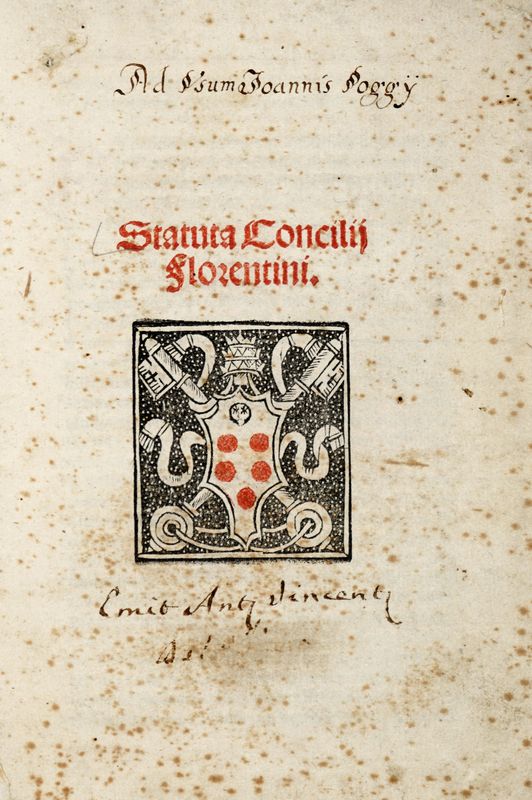 Ad Vsum Joannis Poggÿ
Statuta Concilij
Florentini.
Emit Ant Vincent